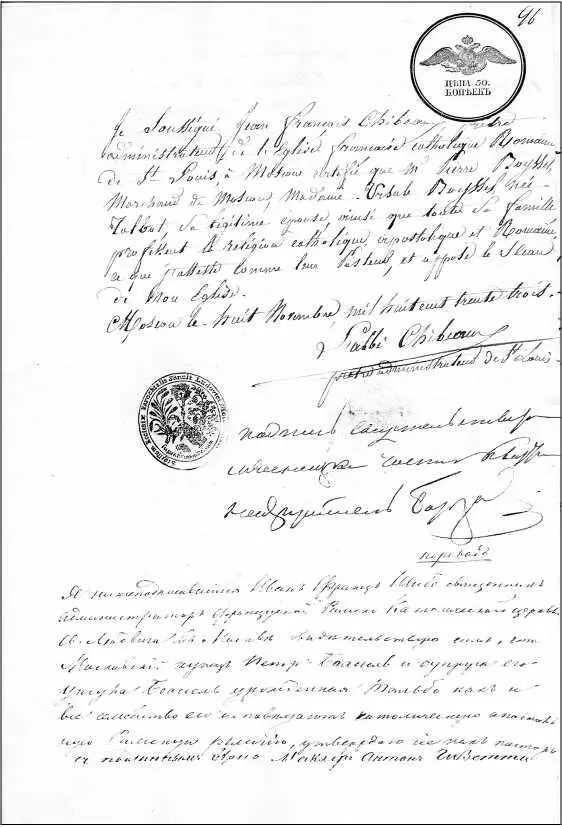 96
ЦѢНА 50.
КОПѢЕКЪ
Je Soussigné, Jean François Chibeaux, prêtre
administrateur de l'Eglise francaise catholique Romaine
de St Louis, à Moscou certifie que Mr Pierre Boyssel,
Marchand de Moscou, Madame Ursule Boyssel, née
Talbot, Sa légitime epouse, ainsi que toute Sa famille
professent la religion catholique, apostolique et Romaine,
ce que j'atteste comme leur Pasteur, et appose le Sceau
de Mon Eglise.
Moscou le huit Novembre, mil huit cent trente trois.
L'abbé Chibeaux
prêtre administrateur de St Louis
Sigillum Ecclesiae Parochialis Sancti Ludovici
подпись
надзиратель
переводъ
Я нижеподписавшійся Иванъ Францъ Шибо священникъ
администраторъ французской Римско Католической церкви
Св. Людовига въ Москвѣ свидѣтельствую симъ, что
Московскій купецъ Петръ Боасель и супруга его
Урсула Боасель урожденная Тальбо какъ и
все семейство его исповѣдаютъ католическую апостоль
скую Римскую религію, утверждаю какъ пасторъ
съ подлиннымъ вѣрно Антонъ